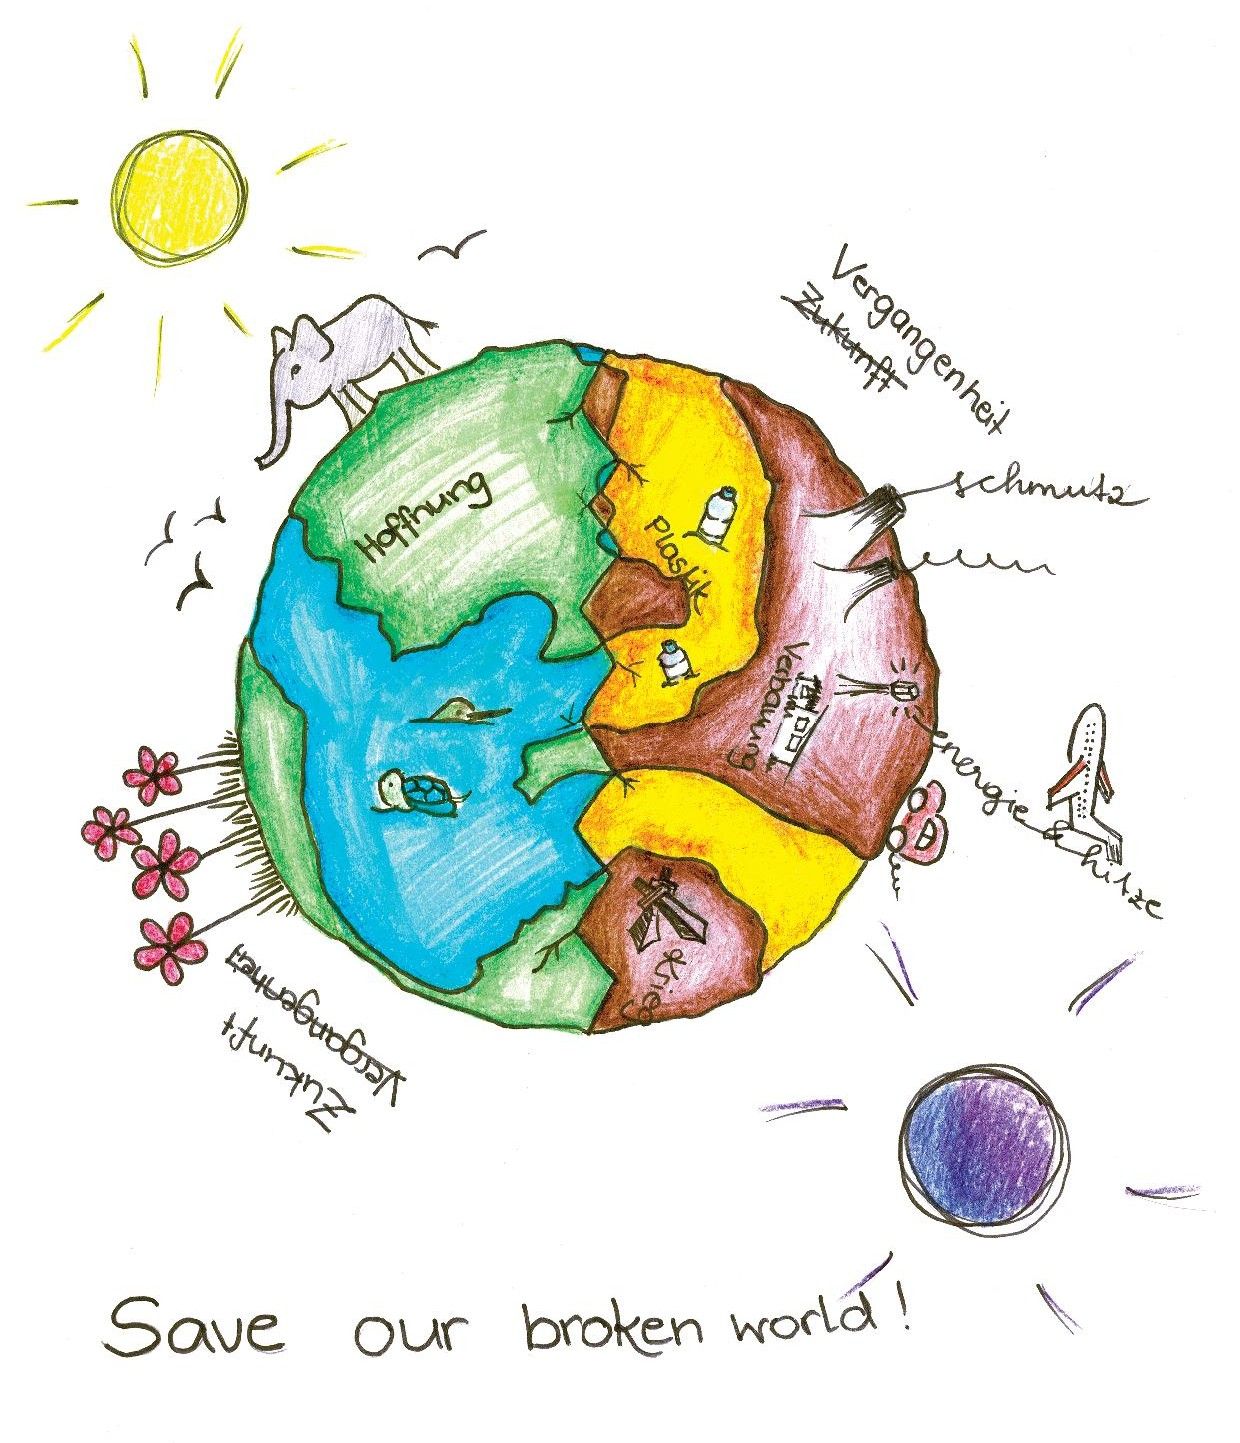 Vergangenheit
Zukunft
schmutz
Hoffnung
Plastik
Verbauung
energie & hitze
Krieg
Vergangenheit
Zukunft
Save our broken world!